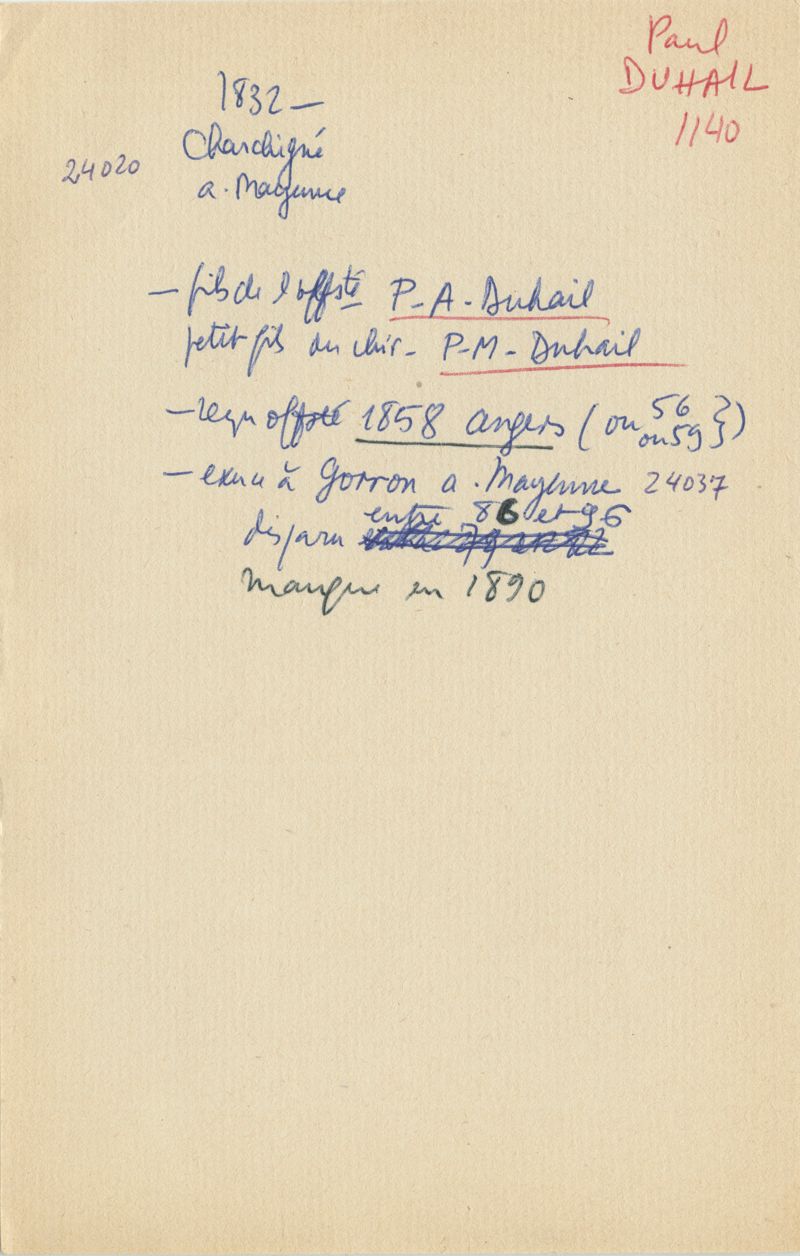 Paul
DUHAIL
1140
1832 –
Charchigné
24020
a. Mayenne
– fils de l'offsté P-A-Duhail
petit fils du chir- P-M-Duhail
– reçu offsté 1858 angers (ou 56
ou 59})
– exerce à Gorron a. Mayenne 24037
entre 86 et 96
disparu
manque en 1890